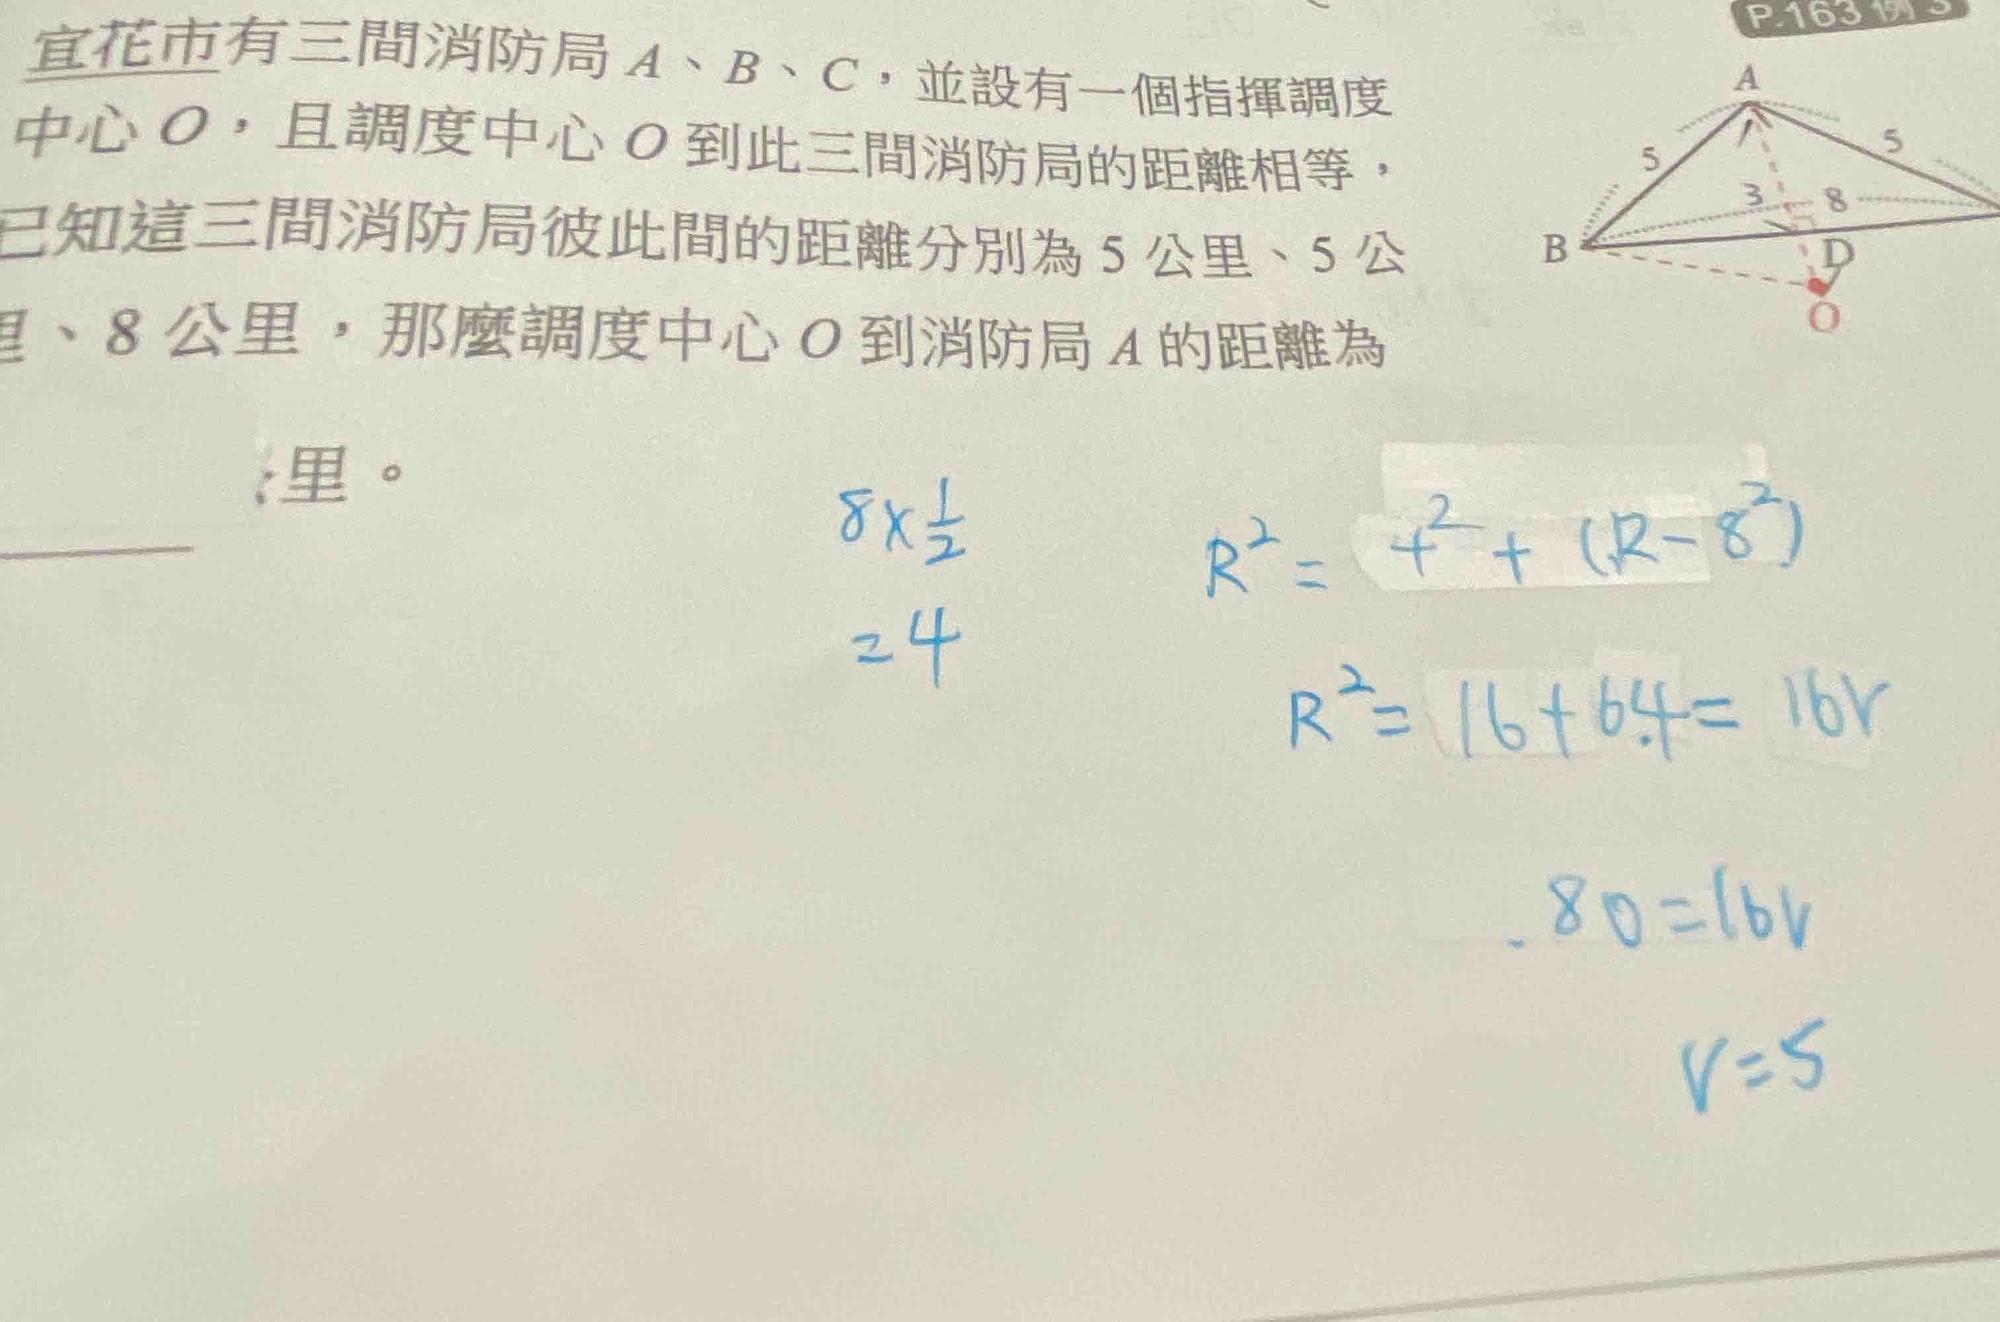 P.163 例 3
宜花市有三間消防局 A、B、C，並設有一個指揮調度
中心 O，且調度中心 O 到此三間消防局的距離相等，
已知這三間消防局彼此間的距離分別為 5 公里、5 公
里、8 公里，那麼調度中心 O 到消防局 A 的距離為
里。
A
5
5
3
8
B
D
O
8×1/2
=4
R²= +²+(R-8²)
R²=16+64=16r
80=16r
r=5